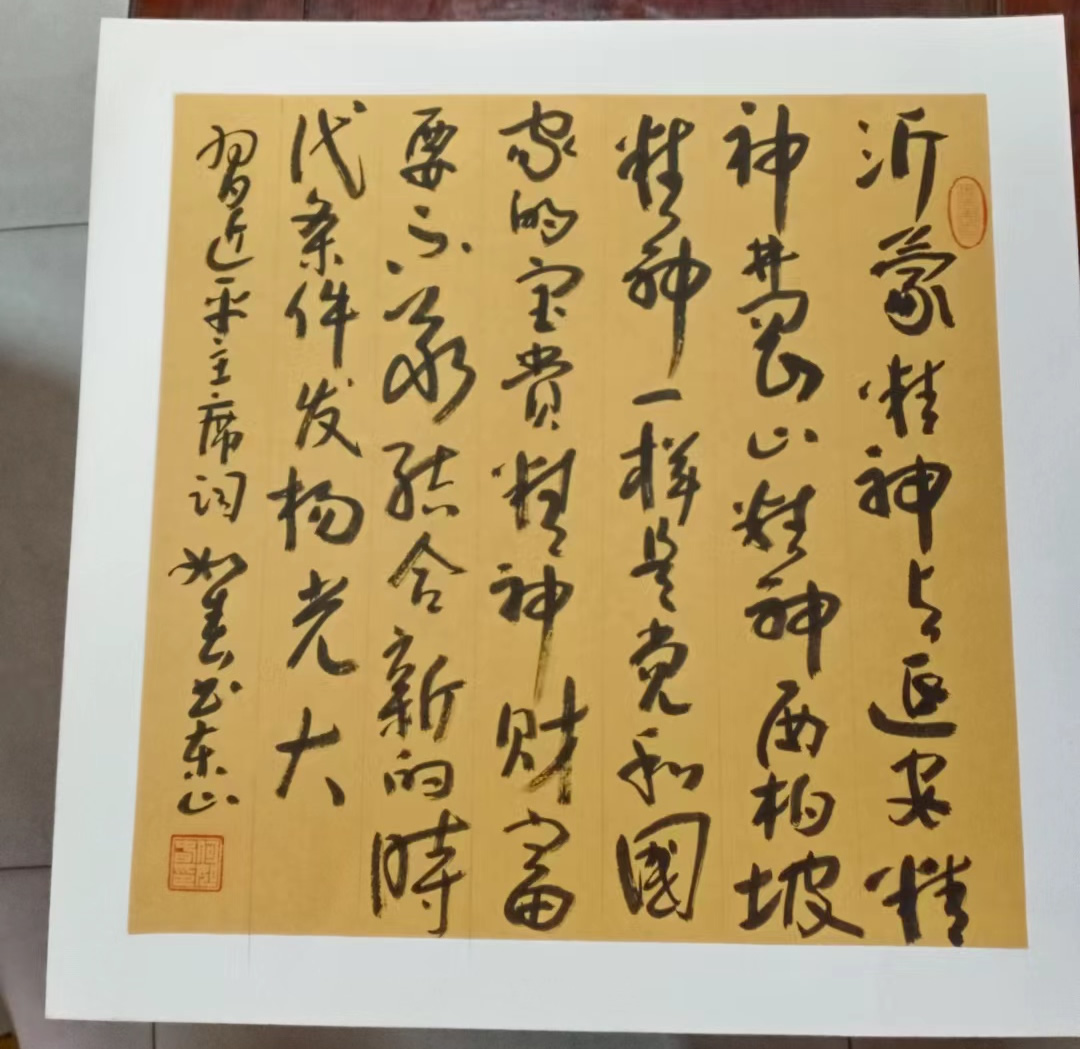 沂蒙精神与延安精
神井冈山精神西柏坡
精神一样是党和國
家的宝貴精神财富
要不断结合新的時
代条件发扬光大
習近平主席词 如书东山